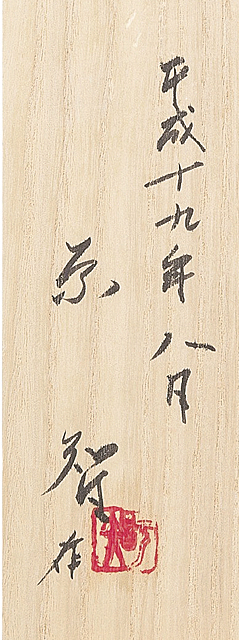 平成十九年八月
原 智 作